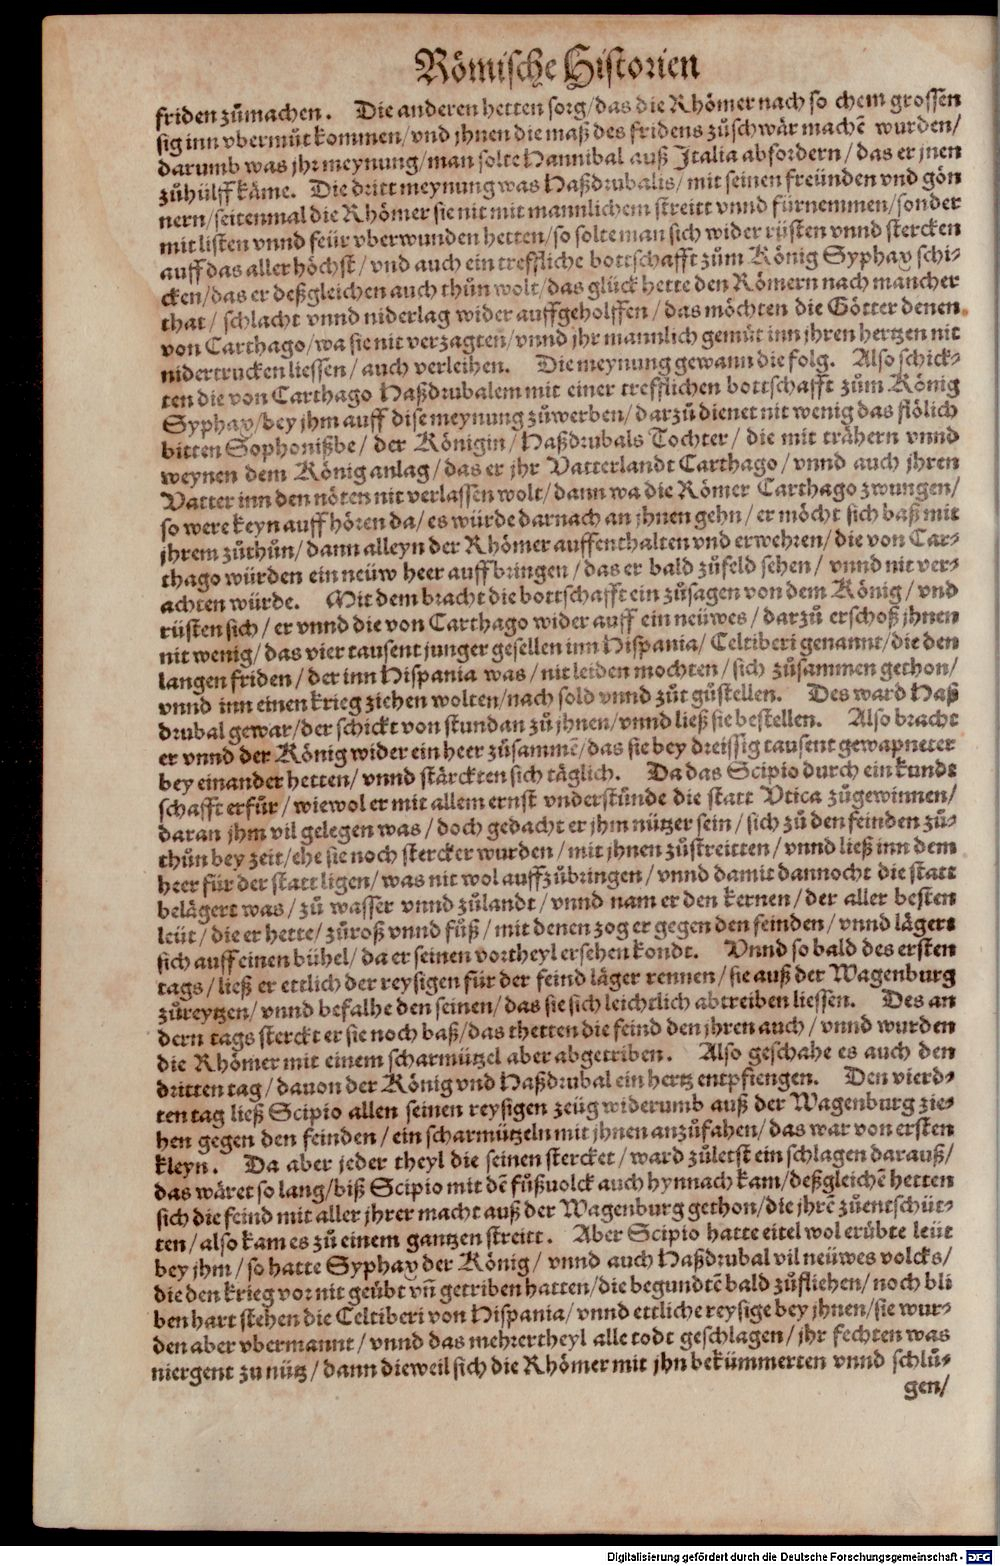 Römische Historien
friden zůmachen. Die anderen hetten sorg/das die Rhömer nach so chem grossen
sig inn vbermůt kommen/vnd jhnen die maß des fridens zůschwär machẽ wurden/
darumb was jhr meynung/man solte Hannibal auß Italia abfordern/das er jnen
zůhülff käme. Die dritt meynung was Haßdrubalis/mit seinen freünden vnd gön
nern/seitenmal die Rhömer sie nit mit mannlichem streitt vnnd fürnemmen/sonder
mit listen vnnd feür vberwunden hetten/so solte man sich wider rüsten vnnd stercken
auff das aller höchst/vnd auch ein treffliche bottschafft zům König Syphax schi-
cken/das er deßgleichen auch thůn wolt/das glück hette den Römern nach mancher
that/schlacht vnnd niderlag wider auffgeholffen/das möchten die Götter denen
von Carthago/wa sie nit verzagten/vnnd jhr mannlich gemůt inn jhren hertzen nit
nidertrucken liessen/auch verleihen. Die meynung gewann die folg. Also schick-
ten die von Carthago Haßdrubalem mit einer trefflichen bottschafft zům König
Syphax/bey jhm auff dise meynung zůwerben/darzů dienet nit wenig das flölich
bitten Sophonißbe/der Königin/Haßdrubals Tochter/die mit trähern vnnd
weynen dem König anlag/das er jhr Vatterlandt Carthago/vnnd auch jhren
Vatter inn den nöten nit verlassen wolt/dann wa die Römer Carthago zwungen/
so were keyn auffhören da/es würde darnach an jhnen gehn/er möcht sich baß mit
jhrem zůthůn/dann alleyn der Rhömer auffenthalten vnd erwehren/die von Car-
thago würden ein neüw heer auffbringen/das er bald zůfeld sehen/vnnd nit ver-
achten würde. Mit dem bracht die bottschafft ein zůsagen von dem König/vnd
rüsten sich/er vnnd die von Carthago wider auff ein neüwes/darzů erschoß jhnen
nit wenig/das vier tausent junger gesellen inn Hispania/Celtiberi genannt/die den
langen friden/der inn Hispania was/nit leiden mochten/sich zůsammen gethon/
vnnd inn einen krieg ziehen wolten/nach sold vnnd zůt gůstellen. Des ward Haß
drubal gewar/der schickt von stundan zů jhnen/vnnd ließ sie bestellen. Also bracht
er vnnd der König wider ein heer zůsammẽ/das sie bey dreissig tausent gewapneter
bey einander hetten/vnnd stärckten sich täglich. Da das Scipio durch ein kundt
schafft erfůr/wiewol er mit allem ernst vnderstůnde die statt Vtica zůgewinnen/
daran jhm vil gelegen was/doch gedacht er jhm nützer sein/sich zů den feinden zů-
thůn bey zeit/ehe sie noch stercker wurden/mit jhnen zůstreitten/vnnd ließ inn dem
heer für der statt ligen/was nit wol auffzůbringen/vnnd damit dannocht die statt
belägert was/zů wasser vnnd zůlandt/vnnd nam er den kernen/der aller besten
leüt/die er hette/zůroß vnnd fůß/mit denen zog er gegen den feinden/vnnd lägert
sich auff einen bühel/da er seinen vortheyl ersehen kondt. Vnnd so bald des ersten
tags/ließ er ettlich der reysigen für der feind läger rennen/sie auß der Wagenburg
zůreytzen/vnnd befalhe den seinen/das sie sich leichtlich abtreiben liessen. Des an
dern tags sterckt er sie noch baß/das thetten die feind den jhren auch/vnnd wurden
die Rhömer mit einem scharmützel aber abgetriben. Also geschahe es auch den
dritten tag/dauon der König vnd Haßdrubal ein hertz entpfiengen. Den vierd-
ten tag ließ Scipio allen seinen reysigen zeüg widerumb auß der Wagenburg zie-
hen gegen den feinden/ein scharmützeln mit jhnen anzůfahen/das war von ersten
kleyn. Da aber jeder theyl die seinen stercket/ward zůletst ein schlagen darauß/
das wäret so lang/biß Scipio mit dẽ fůßuolck auch hynnach kam/deßgleichẽ hetten
sich die feind mit aller jhrer macht auß der Wagenburg gethon/die jhrẽ zůentschüt-
ten/also kam es zů einem gantzen streitt. Aber Scipio hatte eitel wol erübte leüt
bey jhm/so hatte Syphax der König/vnnd auch Haßdrubal vil neüwes volcks/
die den krieg vor nit geübt vñ getriben hatten/die begundtẽ bald zůfliehen/noch bli
ben hart stehen die Celtiberi von Hispania/vnnd ettliche reysige bey jhnen/sie wur-
den aber vbermannt/vnnd das mehrertheyl alle todt geschlagen/jhr fechten was
niergent zu nütz/dann dieweil sich die Rhömer mit jhn bekümmerten vnnd schlů-
gen/
Digitalisierung gefördert durch die Deutsche Forschungsgemeinschaft - DFG